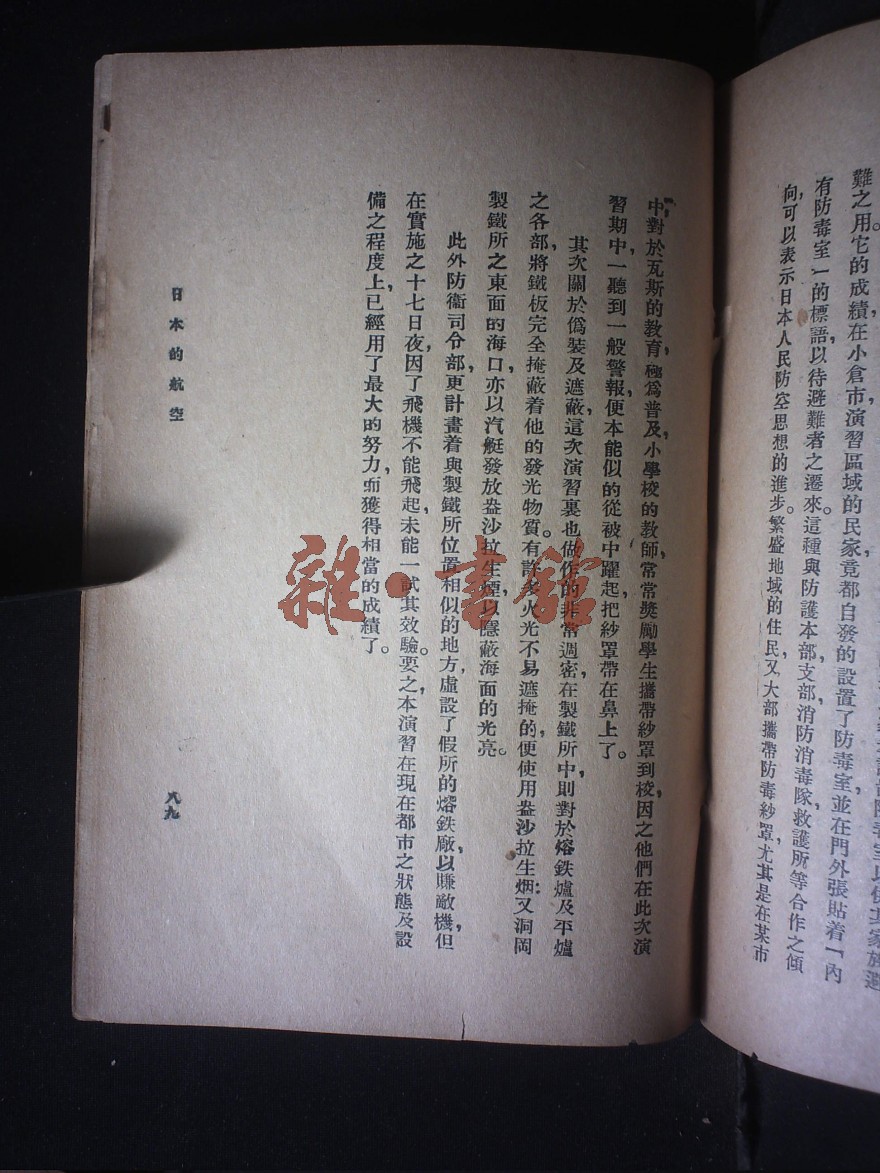 難之用它的成績在小倉市演習區域的民家竟都自發的設置了防毒室並在門外張貼着「內
有防毒室」的標語,以待避難者之遷來。這種與防護本部,支部,消防消毒隊,救護所等合作之傾
向,可以表示日本人民防空思想的進步。繁盛地域的住民又大部攜帶防毒紗罩,尤其是在某市
中對於瓦斯的教育,極爲普及,小學校的教師,常常獎勵學生攜帶紗罩到校,因之他們在此次演
習期中,一聽到一般警報,便本能似的從被中躍起,把紗罩帶在鼻上了。
其次關於僞裝及遮蔽,這次演習裏也做作的非常週密,在製鐵所中,則對於熔鉄爐及平爐
之各部,將鐵板完全掩蔽着他的發光物質。有許多火光不易遮掩的,便使用盎沙拉生烟:又洞岡
製鐵所之東面的海口,亦以汽艇發放盎沙拉生煙,以隱蔽海面的光亮。
此外防衞司令部,更計畫着與製鐵所位置相似的地方,虛設了假所的熔鉄廠,以賺敵機,但
在實施之十七日夜,因了飛機不能飛起,未能一試其效驗。要之,本演習在現在都市之狀態及設
備之程度上,已經用了最大的努力,而獲得相當的成績了。
日本的航空
八九
雜·書館